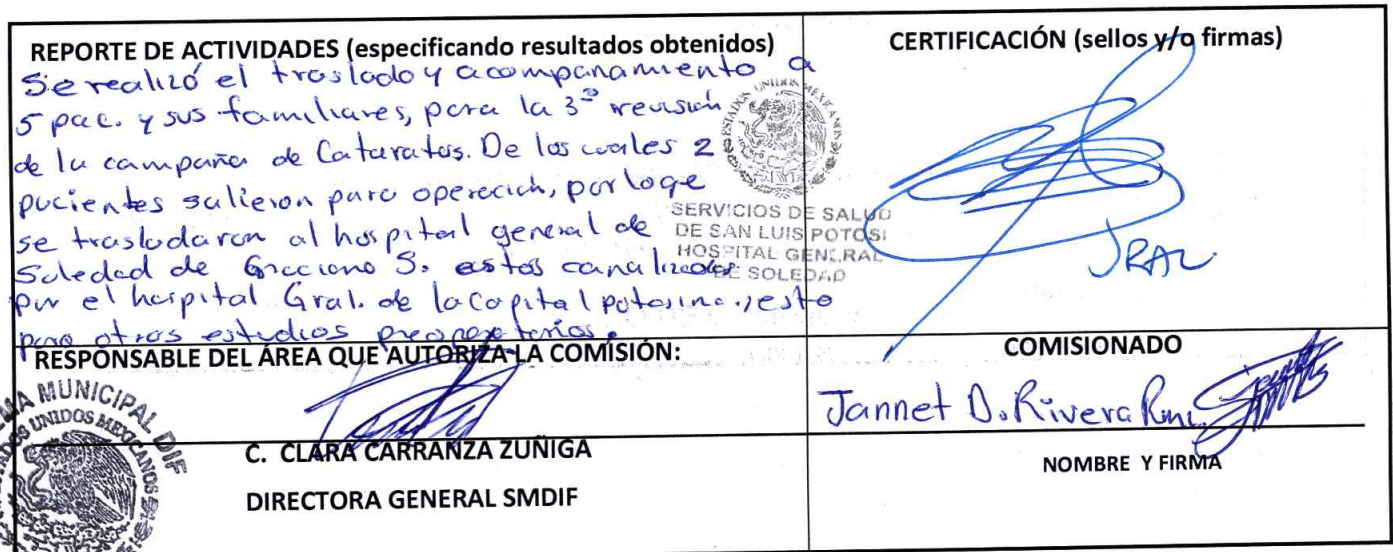 REPORTE DE ACTIVIDADES (especificando resultados obtenidos)
Se realizó el traslado y acompañamiento a
5 pac. y sus familiares, para la 3ª revisión
de la campaña de Cataratas. De los cuales 2
pacientes salieron para operación, por loqe
se trasladaron al hospital general de
Soledad de Graciano S. estos canalizados
por el hospital Gral. de la capital potosina., esto
para otros estudios preoperatorios.
CERTIFICACIÓN (sellos y/o firmas)
ESTADOS UNIDOS MEXICANOS
SERVICIOS DE SALUD
DE SAN LUIS POTOSI
HOSPITAL GENERAL
DE SOLEDAD
JRAL
RESPONSABLE DEL ÁREA QUE AUTORIZA LA COMISIÓN:
MUNICIPAL DIF
UNIDOS MEXICANOS
C. CLARA CARRANZA ZUÑIGA
DIRECTORA GENERAL SMDIF
COMISIONADO
Jannet D. Rivera
NOMBRE Y FIRMA